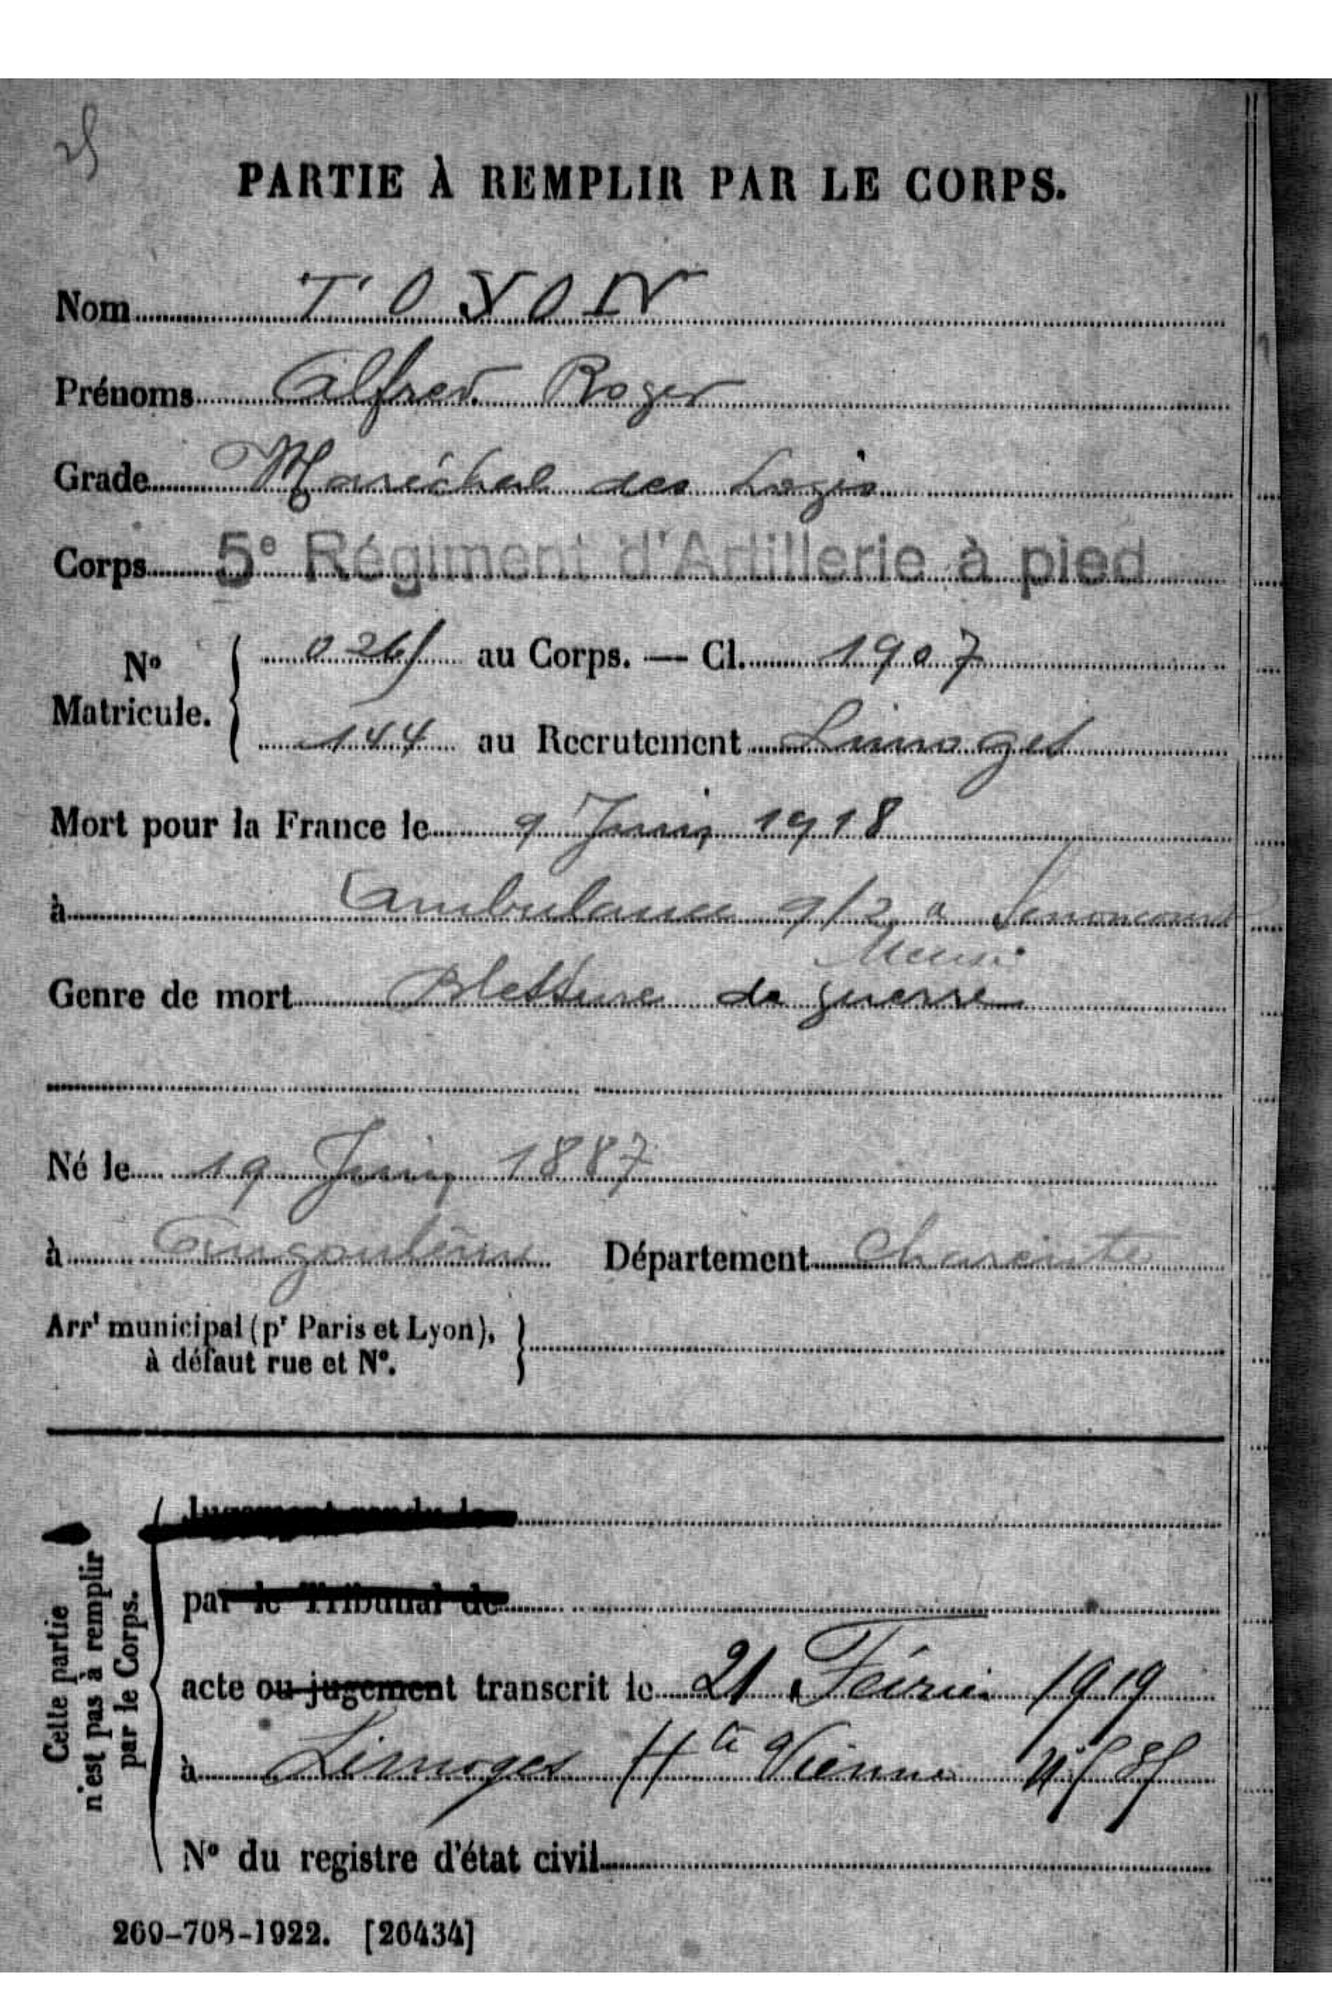 25
PARTIE À REMPLIR PAR LE CORPS.
Nom TOYON
Prénoms Alfred Roger
Grade Maréchal des Logis
Corps 5e Régiment d'Artillerie à pied
No Matricule. { 0265 au Corps. — Cl. 1907
144 au Recrutement Limoges
Mort pour la France le 9 Juin 1918
à Ambulance 9/2 a Senoncourt
Meuse
Genre de mort Blessure de guerre
Né le 19 Juin 1887
à Angoulême Département Charente
Arrt municipal (pr Paris et Lyon), à défaut rue et No. }
Cette partie n'est pas à remplir par le Corps.
Jugement rendu le
par le Tribunal de
acte ou jugement transcrit le 21 Février 1919
à Limoges Hte Vienne
No du registre d'état civil
269-708-1922. [26434]